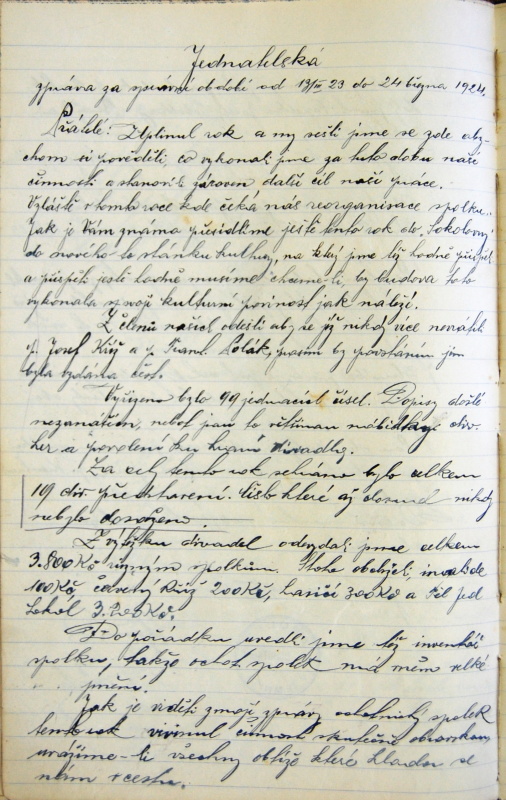 Jednatelská
zpráva za správní období od 13/III 23 do 24 března 1924.
Přátelé! Uplinul rok a my sešli jsme se zde aby-
chom si pověděli, co vykonali jsme za tuto dobu naší
činnosti a stanovili zároveň další cíl naší práce.
Vzláště v tomto roce kde čeká nás reorganisace spolku.
Jak je Vám známo přesídlíme ještě tento rok do Sokolovny
do nového to stánku kultury, na který jme též hodně přispěli
a přispěti ještě hodně musíme chceme-li, by budova tato
vykonala svoji kulturní povinost jak náleží.
Z členů našich odešli aby se již nikdy více nevrátili
p. Josef Kříž a p. Frant. Polák, prosím by povstáním jim
byla vzdána čest.
Vyřízeno bylo 99 jednacích čísel. Dopisy došlé
nezanáším, neboť jsou to většinou nabídky div.
her a povolení ku hraní divadla.
Za celý tento rok sehráno bylo celkem
19 div. představení. číslo které až dosud nikdy
nebylo dosaženo.
Z výtěžku divadel odevzdali jsme celkem
3.800 Kč různým spolkům. Z toho obdrželi, invalidé
100 Kč, červený kříž 200 Kč, hasiči 300 Kč a Těl. jed.
Sokol 3.200 Kč.
Do pořádku uvedli jsme též inventář
spolku, takže ochot. spolek má velké
jmění.
Jak je viděti z mojí zprávy ochotnický spolek
tento rok vyvinul činnost skutečně obrovskou
uvážíme-li všechny obtíže které kladou se
nám v cestu.